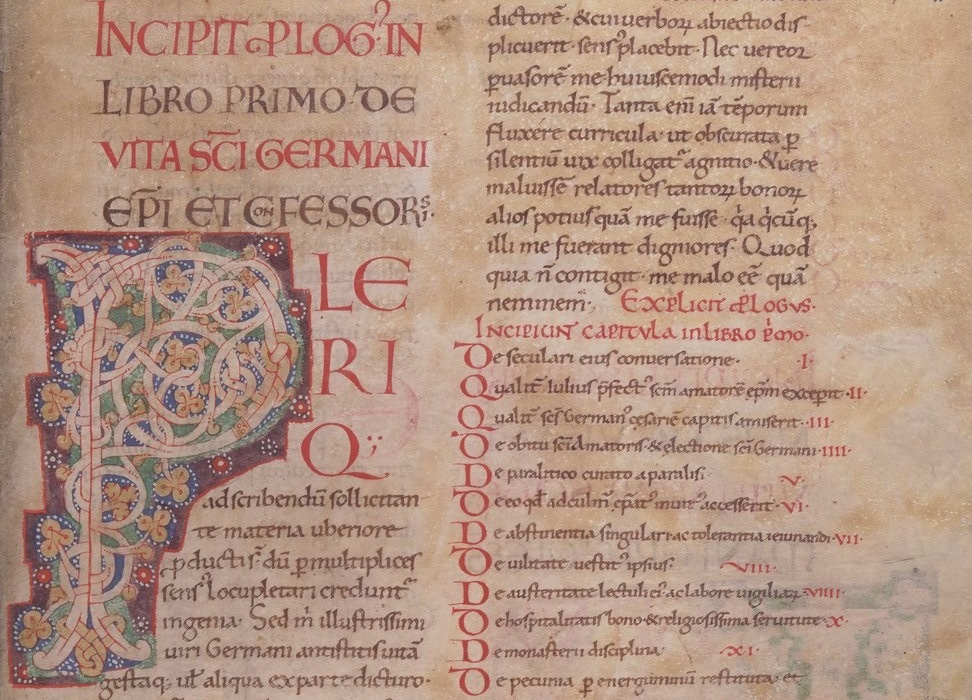 INCIPIT PLOG' IN
LIBRO PRIMO DE
VITA SC̄I GERMANI
EP̄I ET CONFESSORIS·
PLE
RI
Q·
ad scribendū sollicitan
te materia uberiore
ꝓducti s̄· dū ꝑ multiplices
sens' locupletari credunt'
ingenia· Sed m̄ illustrissimi
uiri Germani antistitis uitā
gestaq; ut aliqua ex parte dicturo·
dictorē· & cui uerboꝝ abiectio dis
plicuerit· sens' placebit· Nec uereor
ꝑuasorē me huiuscemodi misterii
iudicandū· Tanta eni iā tēporum
fluxere curricula· ut obscurata ꝑ
silentiū uix colligat' agnitio· & uere
maluissē relatores tantoꝝ bonoꝝ
alios potius quā me fuisse· q̇a q̇cūq;
illi me fuerant digniores· Quod
quia n̄ contigit· me malo eē quā
neminem; EXPLICIT PLOGVS·
INCIPIUNT CAPITVLA IN LIBRO P̊MO·
De seculari eius conuersatione· ·I·
Qualit̄ Iulius p̄fect' sc̄m amatorē ep̄m excepit· II·
Qualit̄ sc̄s German' cęsariē capitis amiserit· III·
De obitu sc̄i Amatoris· & electione sc̄i Germani· IIII·
De paralitico curato a paralisi· V·
De eo qd̄ ad culm̄ ep̄at' inuit' accesserit· VI·
De abstinentia singulari ac tolerantia ieiunandi· VII·
De uilitate uestit' ipsius· VIII·
De austeritate lectuli ei' ac labore uigiliaꝝ· VIIII·
De hospitalitatis bono & religiosissima seruitute· X·
De monasterii disciplina· XI·
De pecunia ꝑ energuminū restituta· et